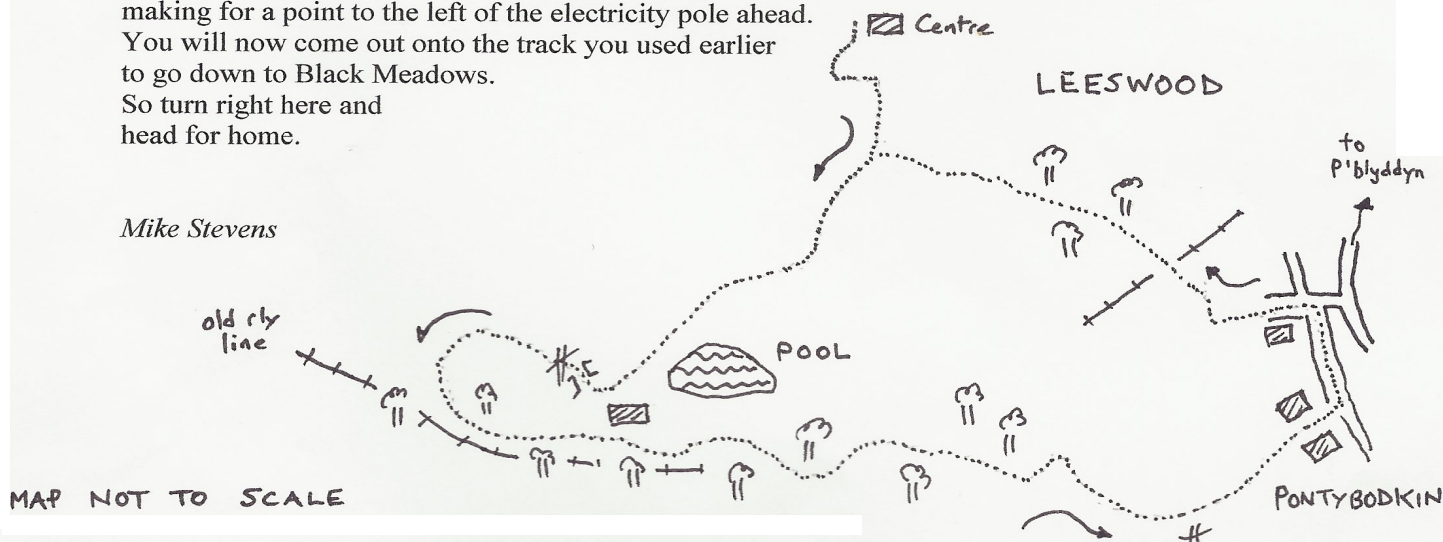 making for a point to the left of the electricity pole ahead.
You will now come out onto the track you used earlier
to go down to Black Meadows.
So turn right here and
head for home.
Mike Stevens
Centre
LEESWOOD
to
P'blyddyn
old rly
line
POOL
MAP NOT TO SCALE
PONTYBODKIN